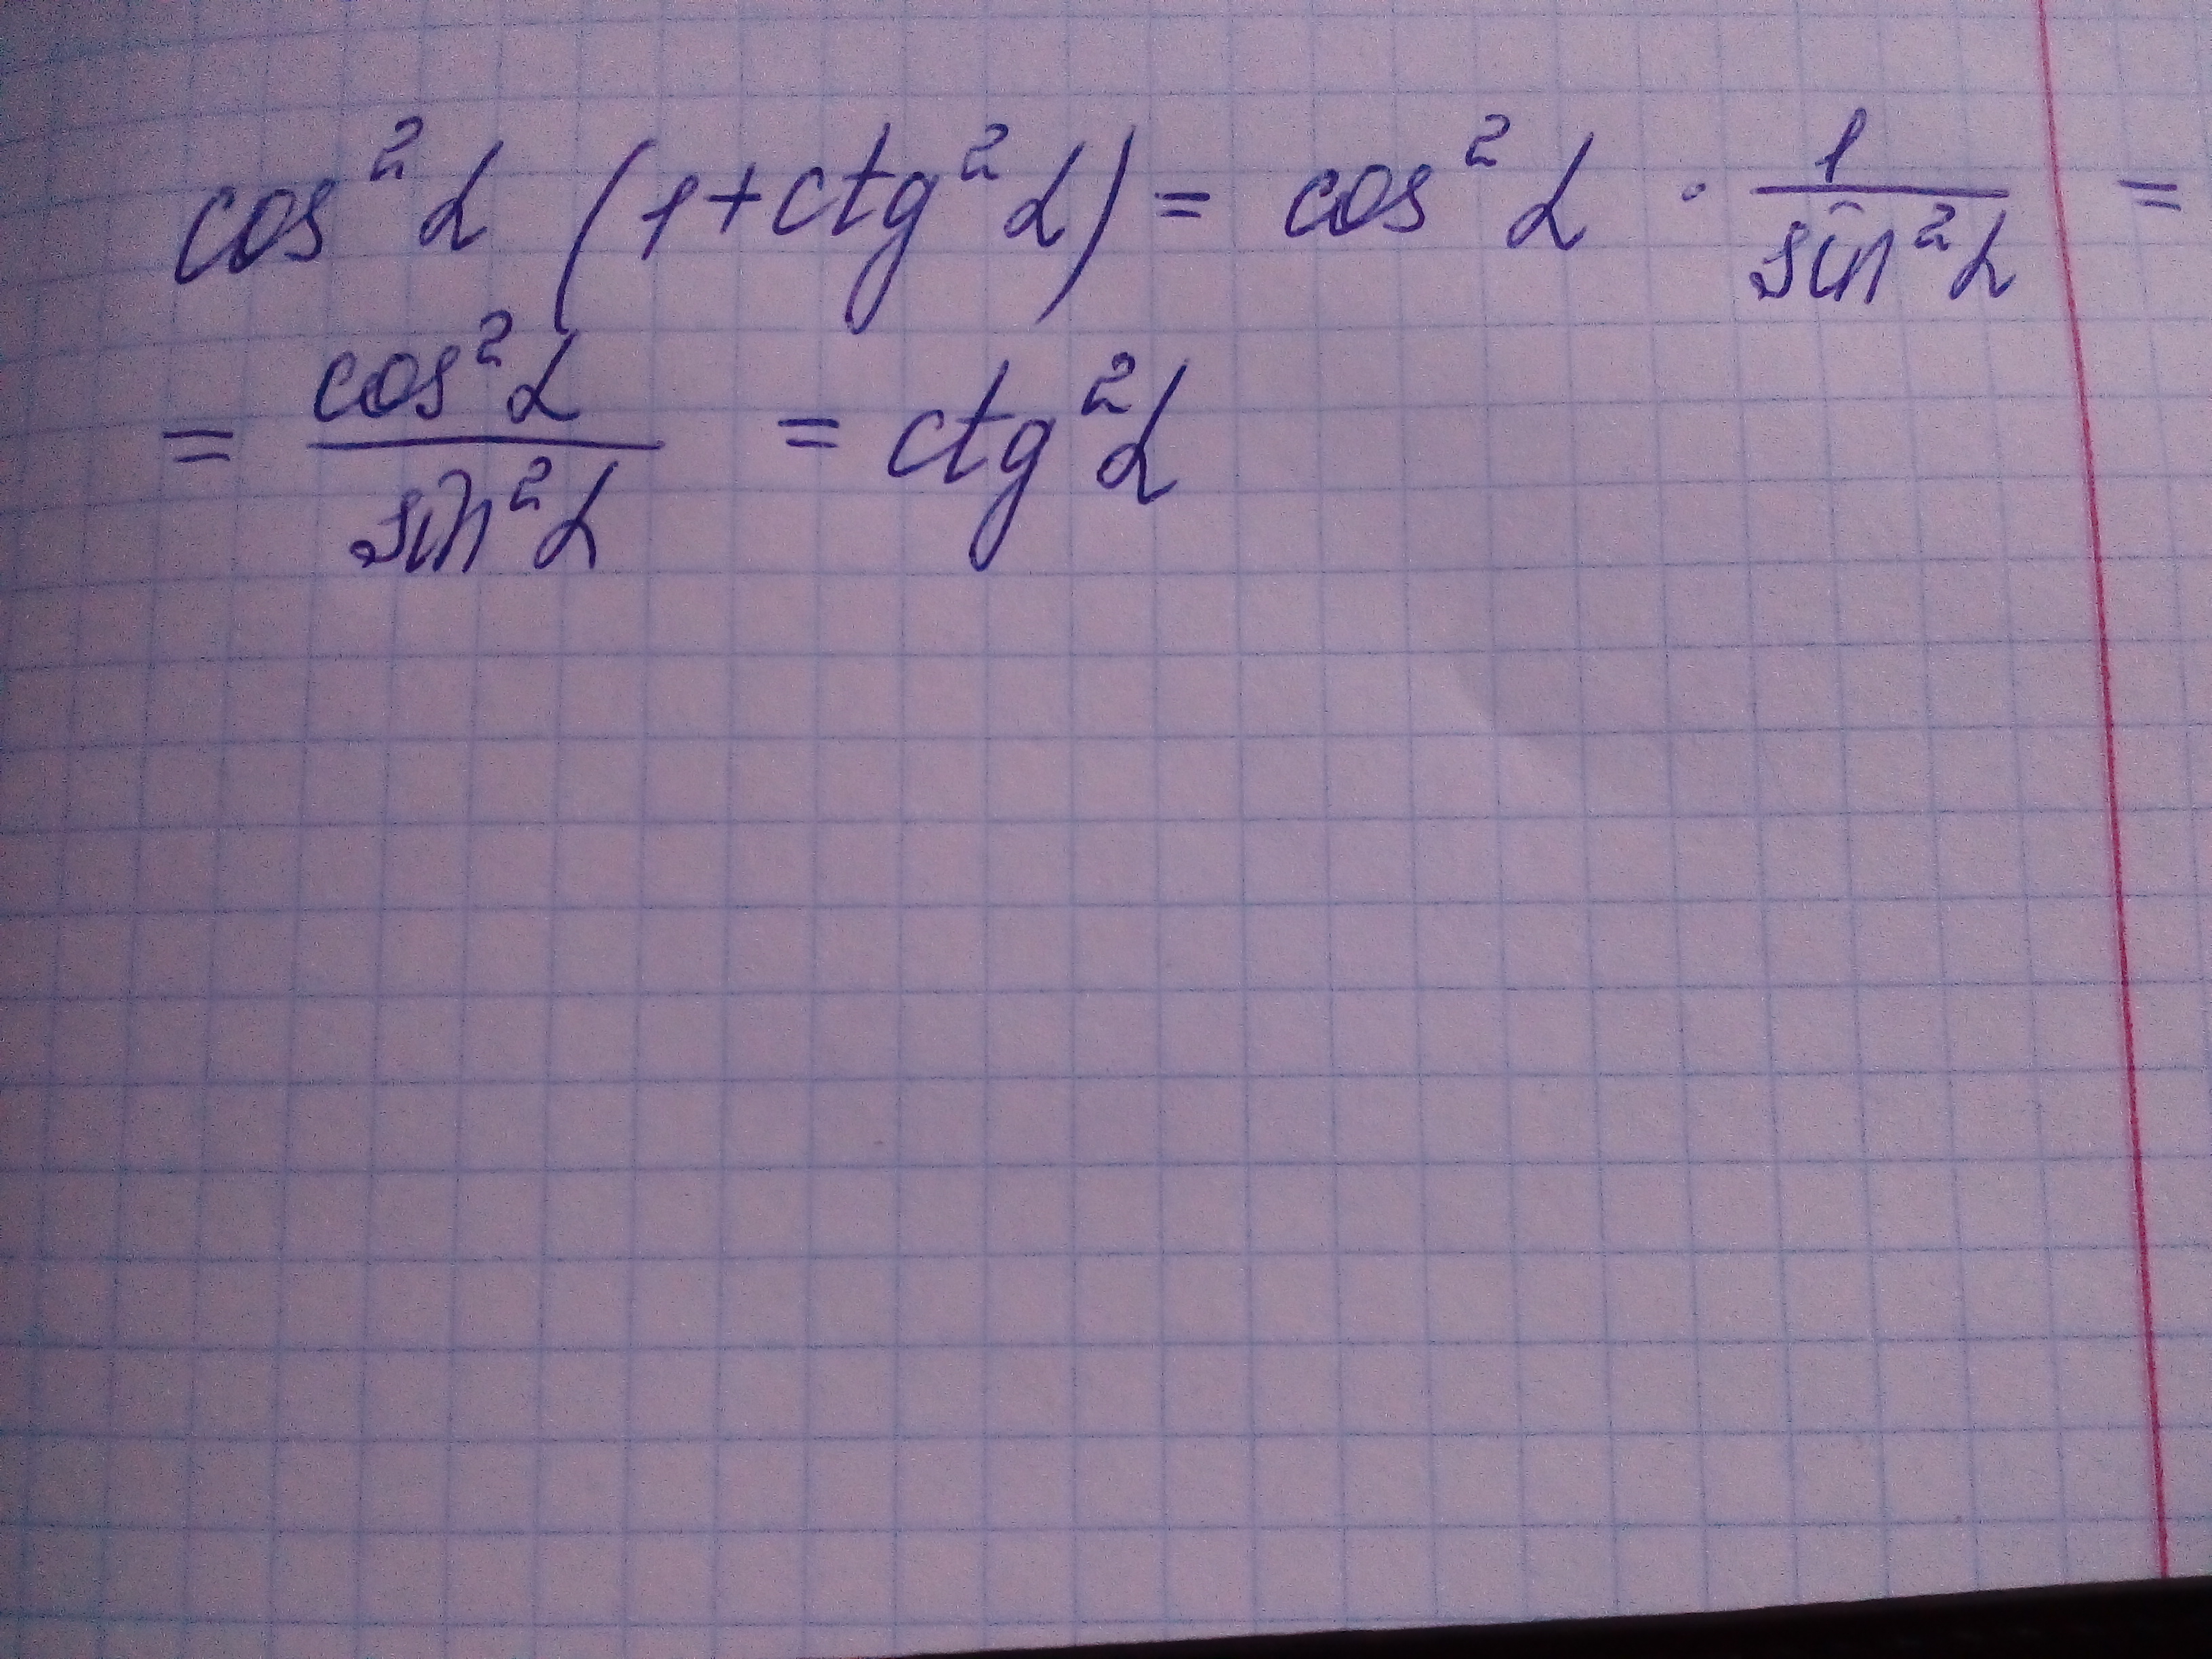 cos²α (1+ctg²α) = cos²α · 1/sin²α =
= cos²α/sin²α = ctg²α